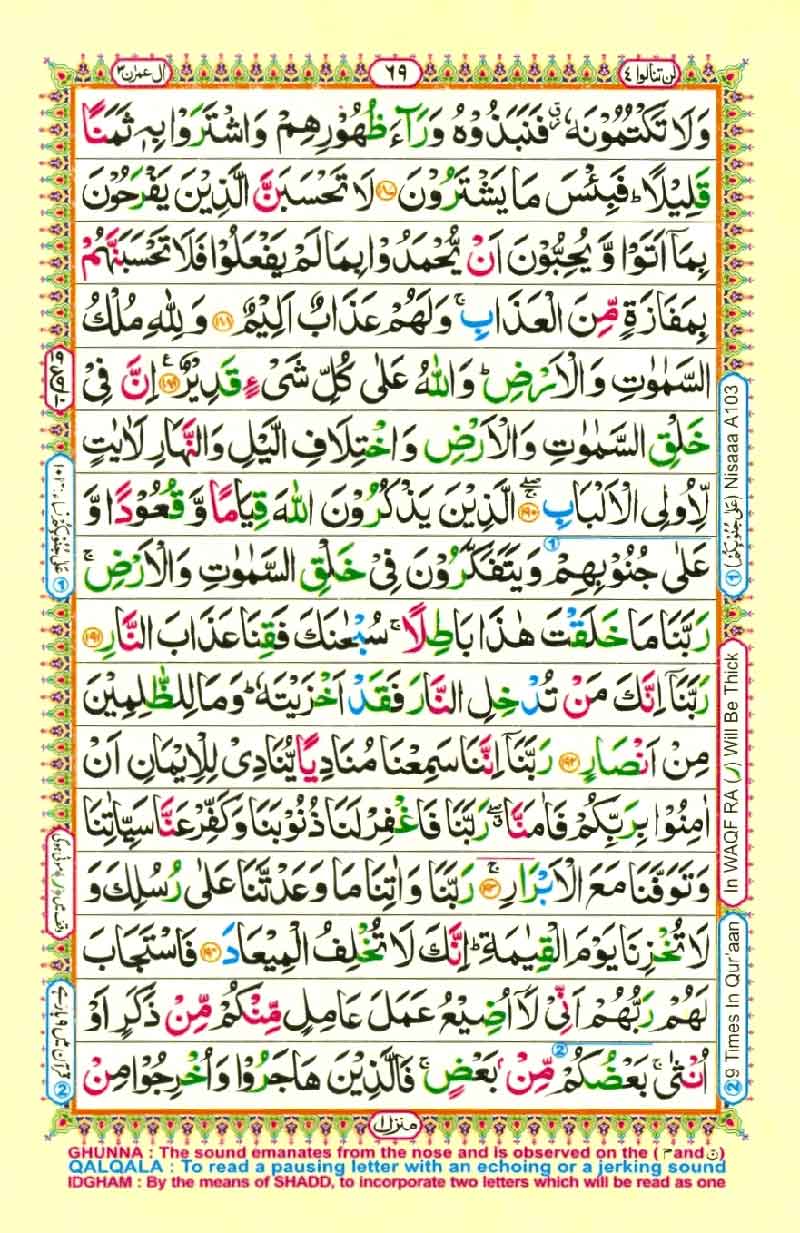 لن تنالوا ٤
٦٩
ال عمرٰن ٣
وَلَا تَكْتُمُوْنَهٗ ز فَنَبَذُوْهُ وَرَآءَ ظُهُوْرِهِمْ وَاشْتَرَوْا بِهٖ ثَمَنًا
قَلِيْلًا ؕ فَبِئْسَ مَا يَشْتَرُوْنَ ۝١٨٧ لَا تَحْسَبَنَّ الَّذِيْنَ يَفْرَحُوْنَ
بِمَآ اَتَوْا وَّ يُحِبُّوْنَ اَنْ يُّحْمَدُوْا بِمَا لَمْ يَفْعَلُوْا فَلَا تَحْسَبَنَّهُمْ
بِمَفَازَةٍ مِّنَ الْعَذَابِ ۚ وَلَهُمْ عَذَابٌ اَلِيْمٌ ۝١٨٨ وَ لِلّٰهِ مُلْكُ
السَّمٰوٰتِ وَالْاَرْضِ ؕ وَاللّٰهُ عَلٰى كُلِّ شَىْءٍ قَدِيْرٌ ۝١٨٩ اِنَّ فِىْ
خَلْقِ السَّمٰوٰتِ وَالْاَرْضِ وَاخْتِلَافِ الَّيْلِ وَالنَّهَارِ لَاٰيٰتٍ
لِّاُولِى الْاَلْبَابِ ۝١٩٠ الَّذِيْنَ يَذْكُرُوْنَ اللّٰهَ قِيَامًا وَّ قُعُوْدًا وَّ
عَلٰى جُنُوْبِهِمْ وَيَتَفَكَّرُوْنَ فِىْ خَلْقِ السَّمٰوٰتِ وَالْاَرْضِ ۚ
رَبَّنَا مَا خَلَقْتَ هٰذَا بَاطِلًا ۚ سُبْحٰنَكَ فَقِنَا عَذَابَ النَّارِ ۝١٩١
رَبَّنَآ اِنَّكَ مَنْ تُدْخِلِ النَّارَ فَقَدْ اَخْزَيْتَهٗ ؕ وَمَا لِلظّٰلِمِيْنَ
مِنْ اَنْصَارٍ ۝١٩٢ رَبَّنَآ اِنَّنَا سَمِعْنَا مُنَادِيًا يُّنَادِىْ لِلْاِيْمَانِ اَنْ
اٰمِنُوْا بِرَبِّكُمْ فَاٰمَنَّا ۖ رَبَّنَا فَاغْفِرْ لَنَا ذُنُوْبَنَا وَكَفِّرْ عَنَّا سَيِّاٰتِنَا
وَتَوَفَّنَا مَعَ الْاَبْرَارِ ۝١٩٣ رَبَّنَا وَاٰتِنَا مَا وَعَدْتَّنَا عَلٰى رُسُلِكَ وَ
لَا تُخْزِنَا يَوْمَ الْقِيٰمَةِ ؕ اِنَّكَ لَا تُخْلِفُ الْمِيْعَادَ ۝١٩٤ فَاسْتَجَابَ
لَهُمْ رَبُّهُمْ اَنِّىْ لَآ اُضِيْعُ عَمَلَ عَامِلٍ مِّنْكُمْ مِّنْ ذَكَرٍ اَوْ
اُنْثٰى ۚ بَعْضُكُمْ مِّنْۢ بَعْضٍ ۚ فَالَّذِيْنَ هَاجَرُوْا وَاُخْرِجُوْا مِنْ
منزل ١
① Nisaaa A103
In WAQF RA (ر) Will Be Thick
② 9 Times In Qur'aan
② قرآن میں ٩ بار ہے
GHUNNA : The sound emanates from the nose and is observed on the (م and ن)
QALQALA : To read a pausing letter with an echoing or a jerking sound
IDGHAM : By the means of SHADD, to incorporate two letters which will be read as one